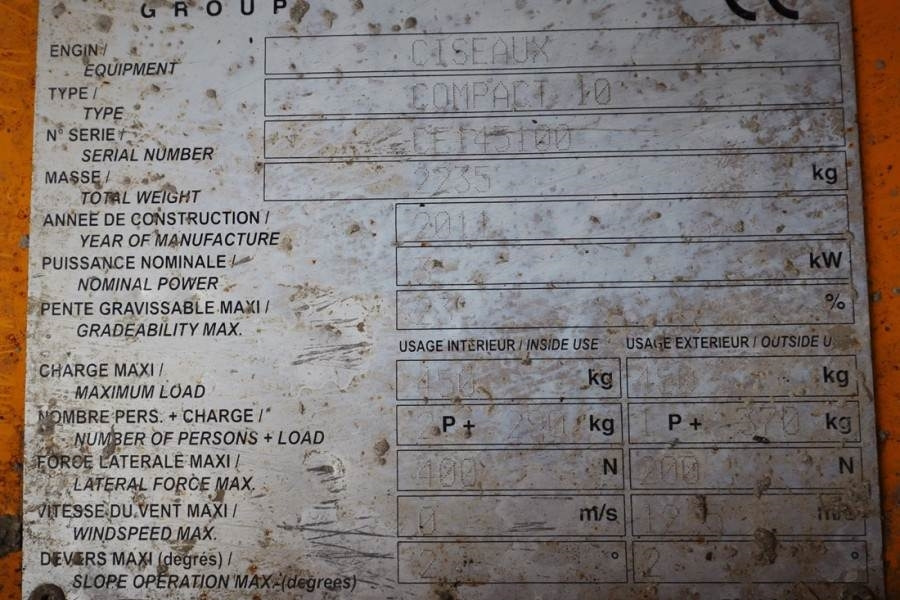 GROUP CE
ENGIN / CISEAUX
EQUIPMENT
TYPE / COMPACT 10
TYPE
N° SERIE /
SERIAL NUMBER
MASSE / 2235 kg
TOTAL WEIGHT
ANNEE DE CONSTRUCTION / 2011
YEAR OF MANUFACTURE
PUISSANCE NOMINALE / kW
NOMINAL POWER
PENTE GRAVISSABLE MAXI / %
GRADEABILITY MAX.
USAGE INTERIEUR / INSIDE USE USAGE EXTERIEUR / OUTSIDE U
CHARGE MAXI / 450 kg kg
MAXIMUM LOAD
NOMBRE PERS. + CHARGE / 2 P + 290 kg 1 P + 370 kg
NUMBER OF PERSONS + LOAD
FORCE LATERALE MAXI / 400 N 200 N
LATERAL FORCE MAX.
VITESSE DU VENT MAXI / 0 m/s m/s
WINDSPEED MAX.
DEVERS MAXI (degrés) / 2 ° 2 °
SLOPE OPERATION MAX. (degrees)